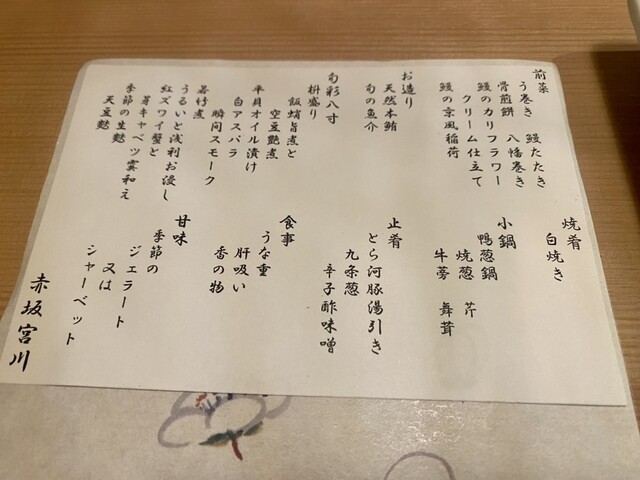 前菜
う巻き　鰻たたき
骨煎餅　八幡巻き
鰻のカリフラワー
クリーム仕立て
鰻の京風稲荷
お造り
天然本鮪
旬の魚介
旬彩八寸
枡盛り
飯蛸旨煮と
空豆艶煮
平貝オイル漬け
白アスパラ
瞬間スモーク
若竹煮
うるいと浅利お浸し
紅ズワイ蟹と
芽キャベツ霙和え
季節の生麩
天豆麩
焼肴
白焼き
小鍋
鴨葱鍋
焼葱　芹
牛蒡　舞茸
止肴
とら河豚湯引き
九条葱
辛子酢味噌
食事
うな重
肝吸い
香の物
甘味
季節の
ジェラート
又は
シャーベット
赤坂宮川